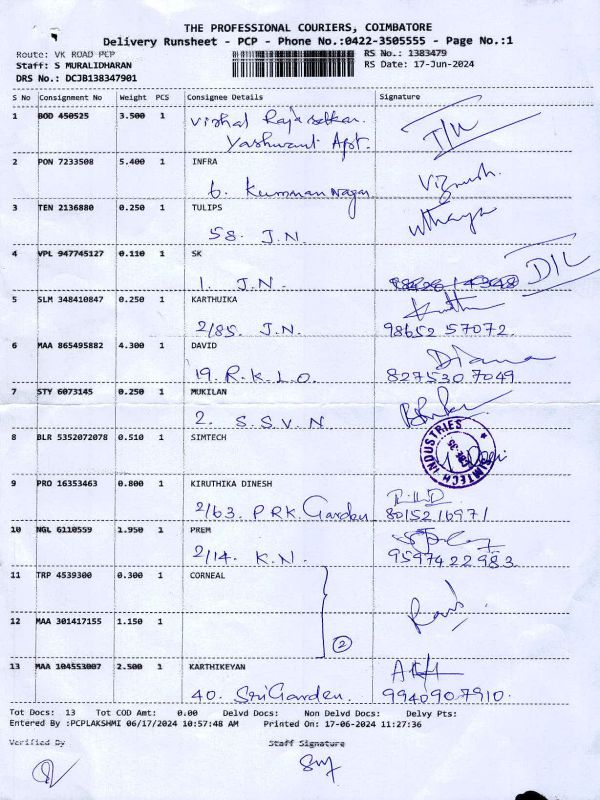 THE PROFESSIONAL COURIERS, COIMBATORE
Delivery Runsheet - PCP - Phone No.:0422-3505555 - Page No.:1
Route: VK ROAD PCP RS No.: 1383479
Staff: S MURALIDHARAN RS Date: 17-Jun-2024
DRS No.: DCJB138347901
S No Consignment No Weight PCS Consignee Details Signature
1 BOD 450525 3.500 1 Vishal
Yashwant Apt.
2 PON 7233508 5.400 1 INFRA
6. Kumman Nagar Vignesh.
3 TEN 2136880 0.250 1 TULIPS
58. J.N.
4 VPL 947745127 0.110 1 SK
1. J.N. D/L
5 SLM 348410847 0.250 1 KARTHUIKA
2/85. J.N. 98652 57072.
6 MAA 865495882 4.300 1 DAVID Diana
19. R.K.L.O. 827530 7049
7 STY 6073145 0.250 1 MUKILAN
2. S.S.V.N
8 BLR 5352072078 0.510 1 SIMTECH
SIMTECH INDUSTRIES
9 PRO 16353463 0.800 1 KIRUTHIKA DINESH
2/63. PRK Garden 8015216971
10 NGL 6110559 1.950 1 PREM
2/14. K.N. 9597422983
11 TRP 4539300 0.300 1 CORNEAL
12 MAA 301417155 1.150 1
2
13 MAA 104553007 2.500 1 KARTHIKEYAN
40. Sri Garden. 9940907910.
Tot Docs: 13 Tot COD Amt: 0.00 Delvd Docs: Non Delvd Docs: Delvy Pts:
Entered By :PCPLAKSHMI 06/17/2024 10:57:48 AM Printed On: 17-06-2024 11:27:36
Verified By Staff Signature